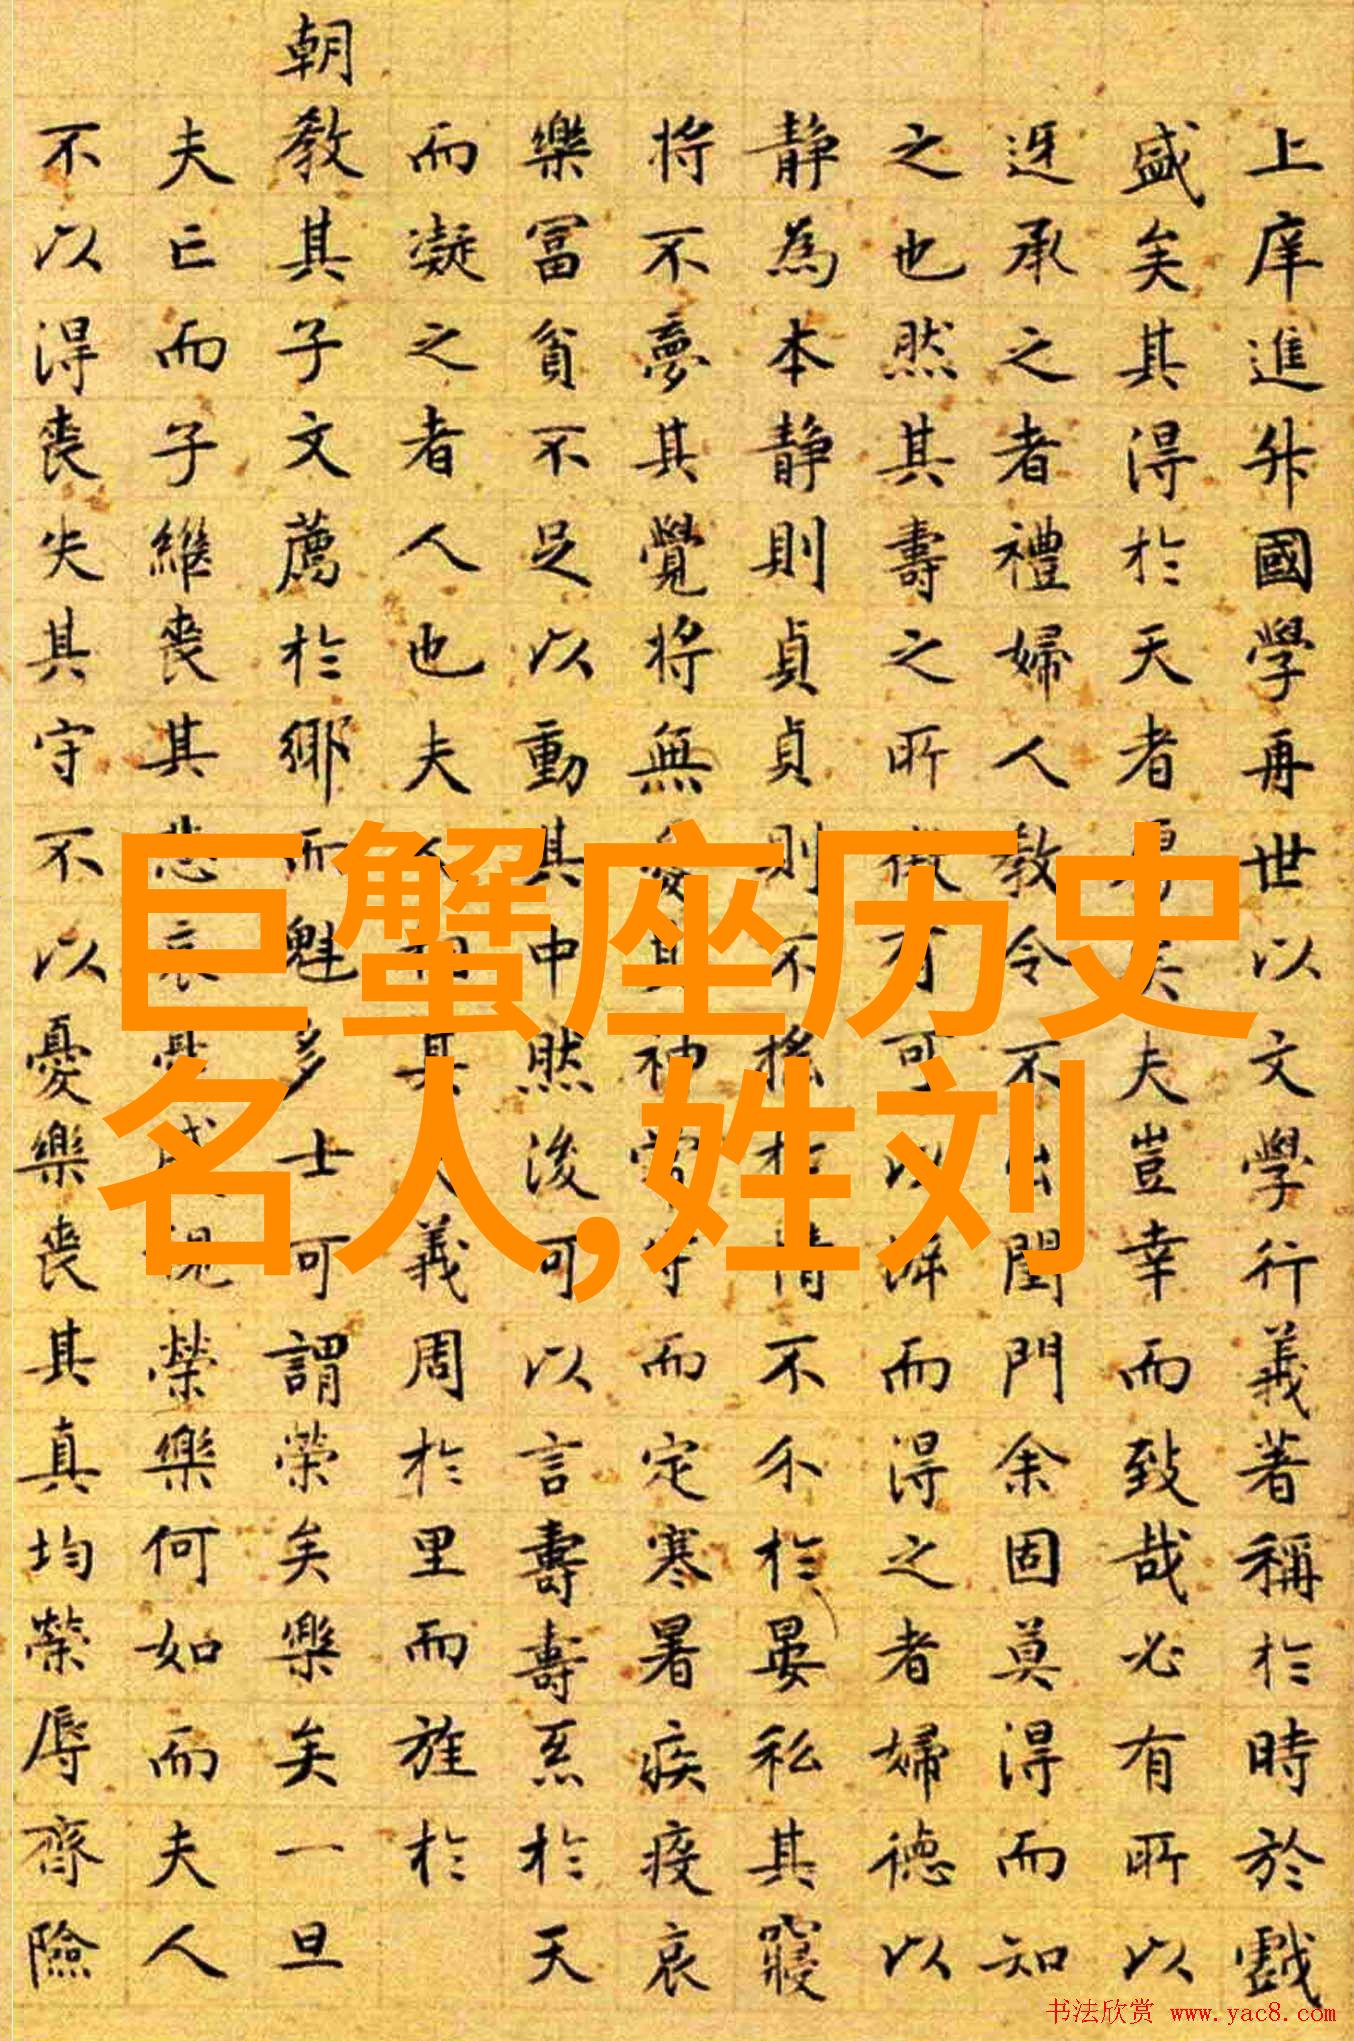 上庠進升國學再世以文學行義著稱於時於戲
盛矣其得於天者矣夫豈幸而致哉必有所以
迓承之者禮婦人教令不出閨門余固莫得而知
之也然其壽之所徵有可以而得之者婦德以
静為本静則貞貞則不搖於情不分於晏私其寢
将不夢其覺将無妄其神常守而定寒暑疾疫哀
樂冨貧不足以動其中然後可以言壽壽烝於天
而凝之者人也夫人相其夫義周於里而旌於
朝教其子文薦於鄉而魁多士可謂榮矣樂矣一旦
夫亡而子繼喪其悲哀戚視榮樂何如而夫人
不以得喪失其守不以憂樂喪其真均榮辱齊險
巨蟹座历史
名人,姓刘
书法欣赏 www.yac8.com